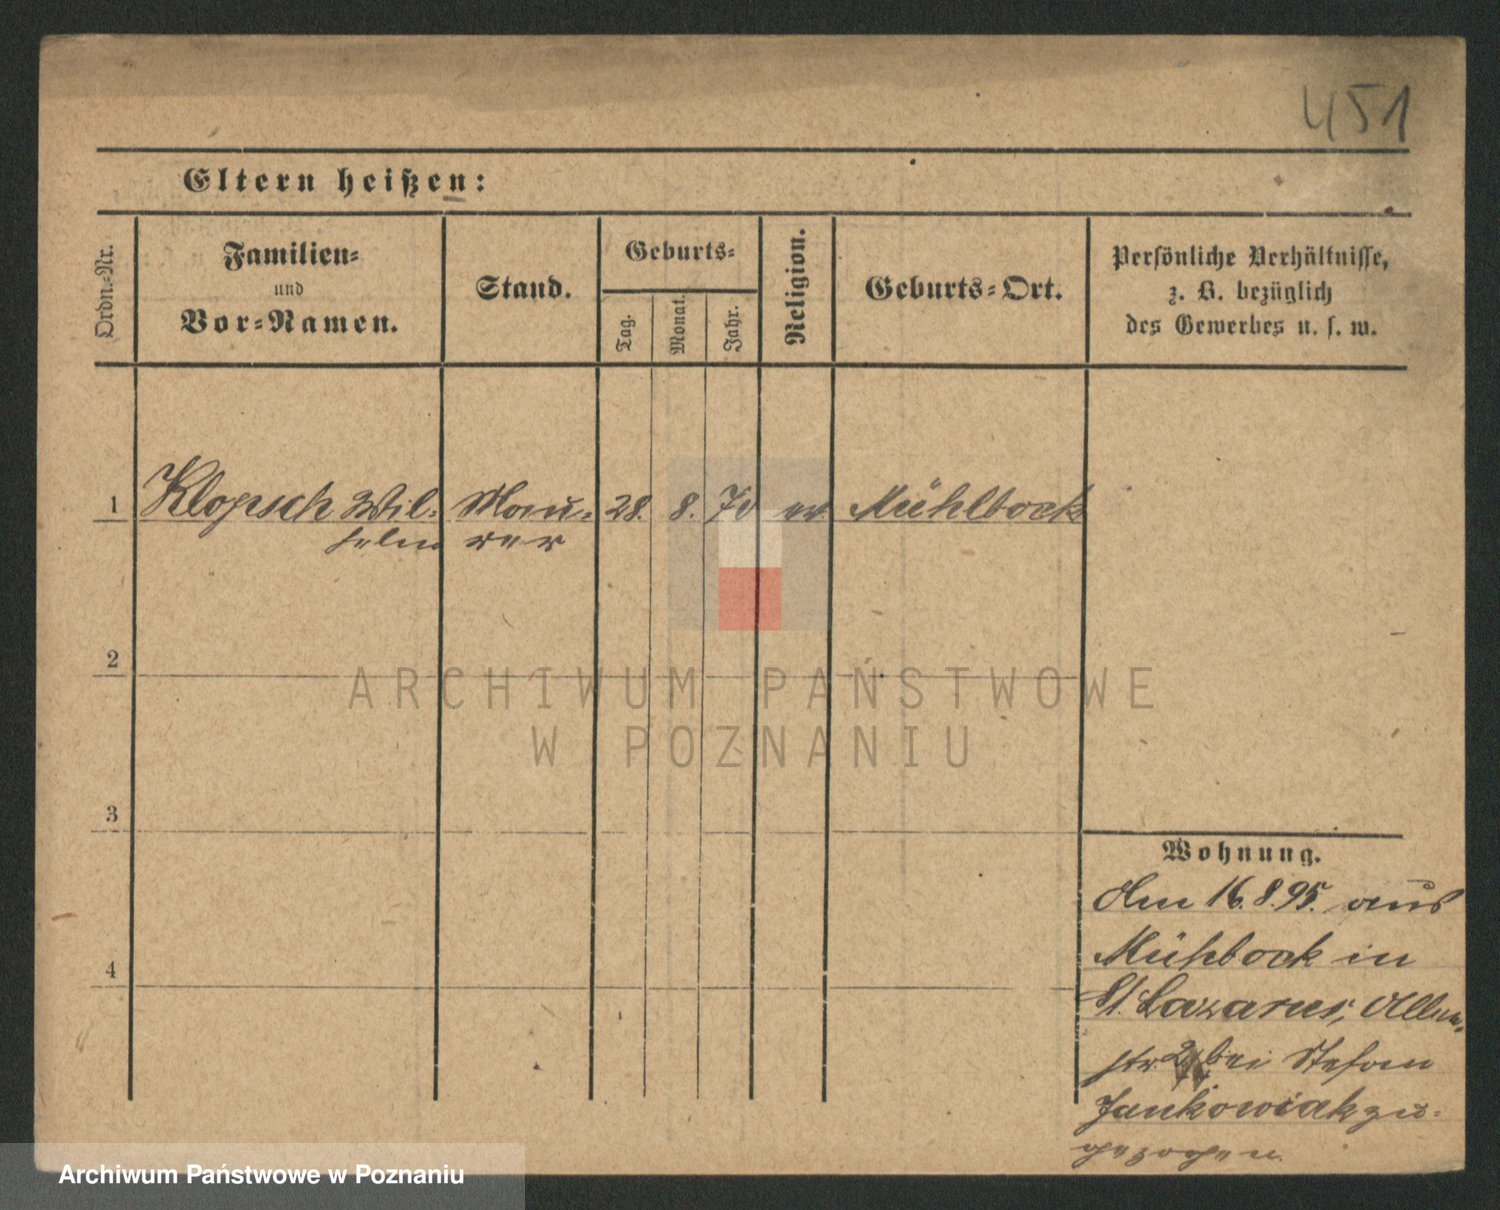 451
Eltern heißen:
Ordn.-Nr.
Familien-
und
Vor-Namen.
Stand.
Geburts-
Tag.
Monat.
Jahr.
Religion.
Geburts-Ort.
Persönliche Verhältnisse,
z. B. bezüglich
des Gewerbes u. s. w.
1 Klopsch Wil- Mau- 28. 8. 70 ev Mühlbock
helm rer
2
3
4
Wohnung.
Am 16.8.95. aus
Mühlbock in
St. Lazarus,
str. bei Stefan
Jankowiak zu-
gezogen.
ARCHIWUM PAŃSTWOWE
W POZNANIU
Archiwum Państwowe w Poznaniu